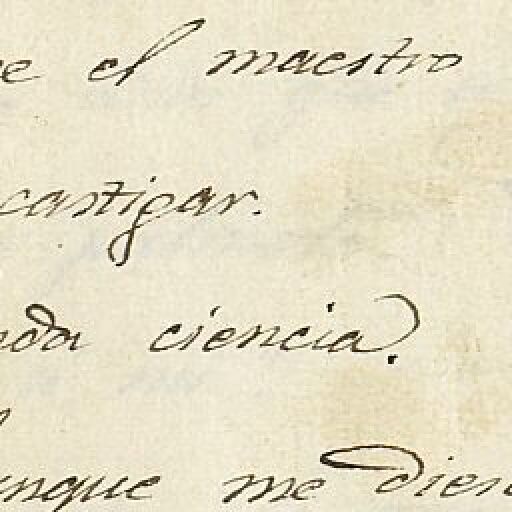 e el maestro
castigar.
da ciencia?
unque me dien